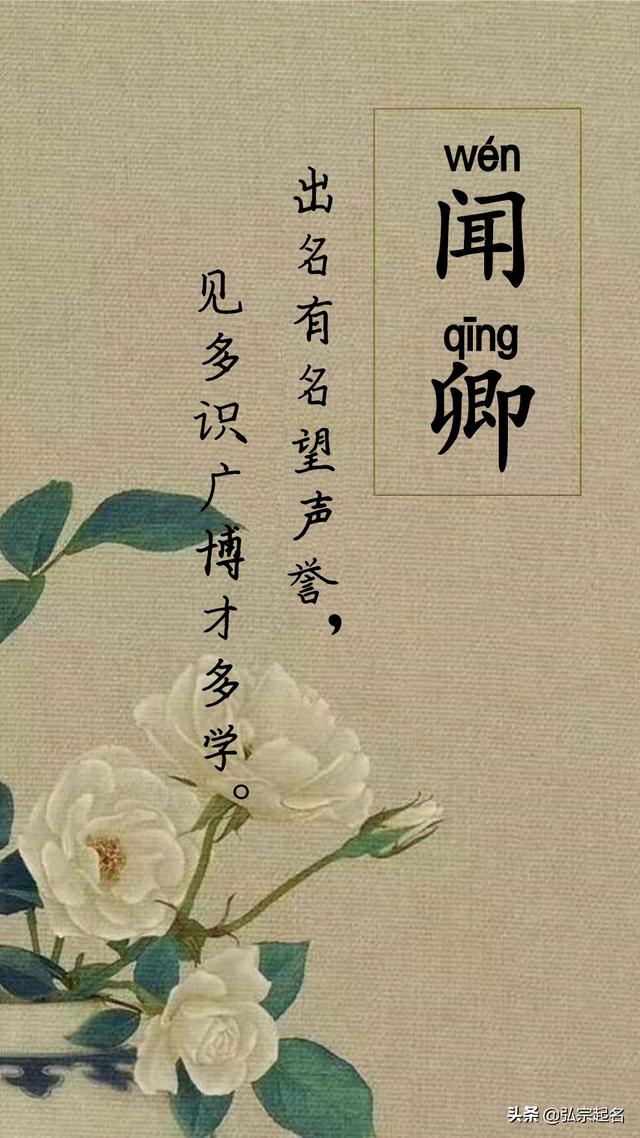 wén
闻
qīng
卿
出名有名望声誉，
见多识广博才多学。
头条 @弘宗起名